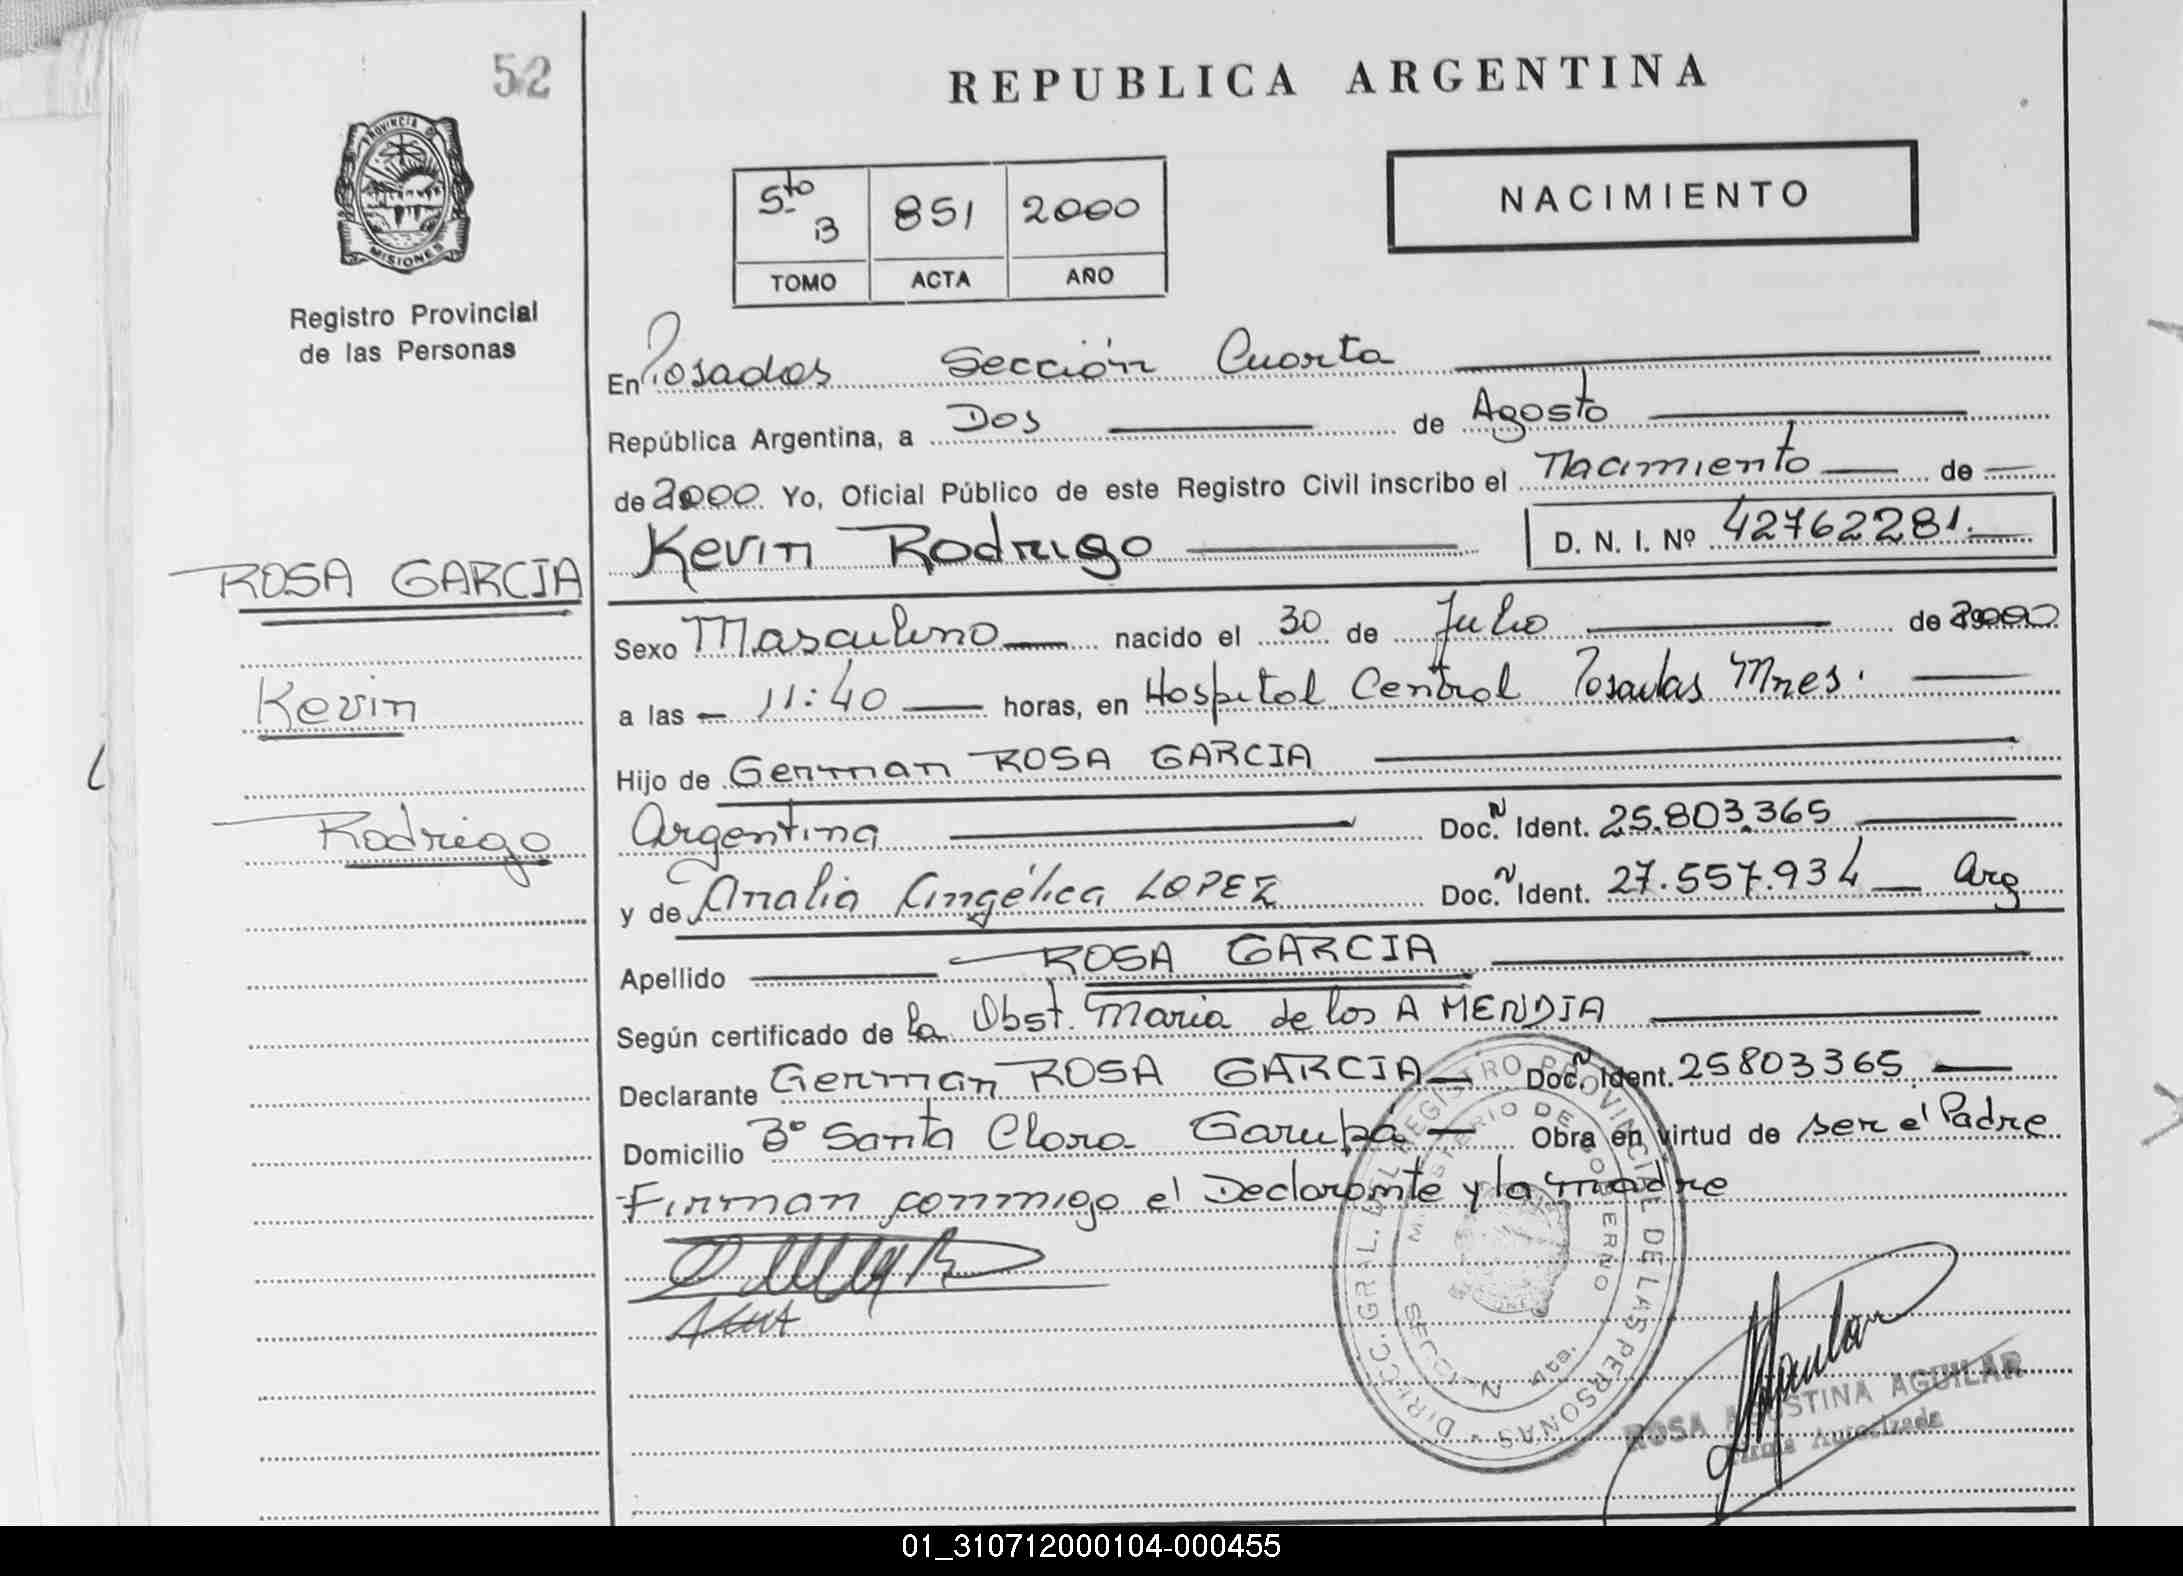 52
REPUBLICA ARGENTINA
PROVINCIA D
MISIONES
Registro Provincial
de las Personas
5to B 851 2000
TOMO ACTA AÑO
NACIMIENTO
En Posadas Sección Cuarta
República Argentina, a Dos de Agosto
de 2000 Yo, Oficial Público de este Registro Civil inscribo el Nacimiento de
Kevin Rodrigo D. N. I. Nº 42762281.
ROSA GARCIA
Kevin
Rodrigo
Sexo Masculino nacido el 30 de Julio de 2000
a las 11:40 horas, en Hospital Central Posadas Mnes.
Hijo de German ROSA GARCIA
Argentina Doc. N Ident. 25.803.365
y de Analia Angélica LOPEZ Doc. N Ident. 27.557.934 Arg
Apellido ROSA GARCIA
Según certificado de la Obst. Maria de los A MENDIA
Declarante German ROSA GARCIA Doc. N Ident. 25803365
Domicilio Bº Santa Clara Garupá Obra en virtud de ser el Padre
Firman conmigo el Declarante y la madre
DIRECC. GRAL. DEL REGISTRO PROVINCIAL DE LAS PERSONAS
MINISTERIO DE GOBIERNO
4ta.
ROSA AGUSTINA AGUILAR
Firma Autorizada
01_310712000104-000455